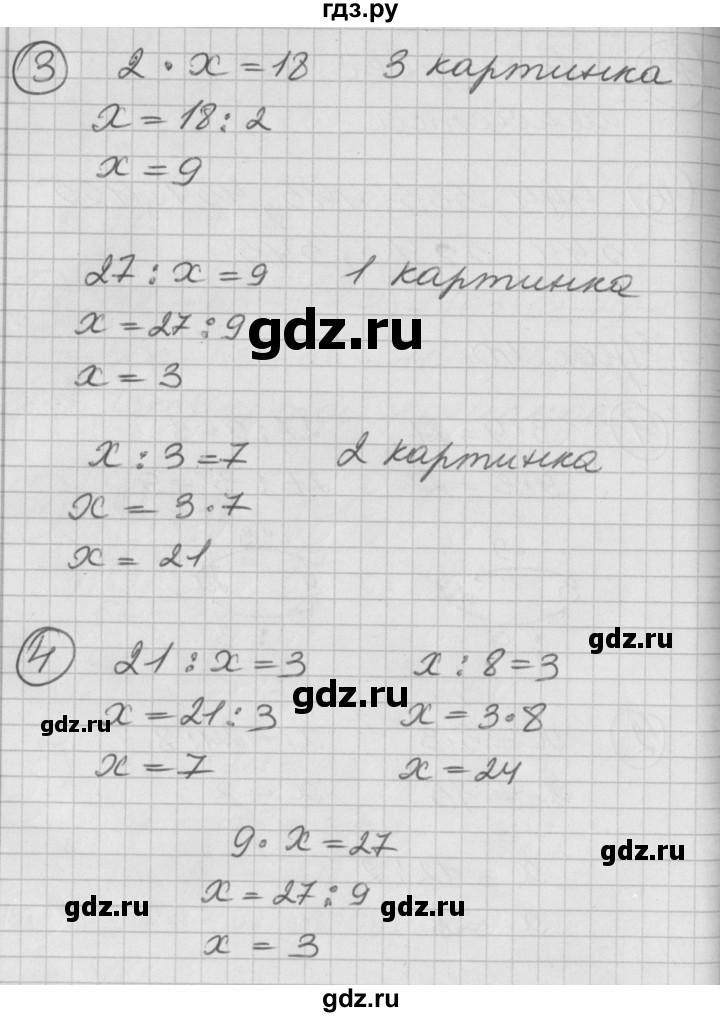 гдз.ру
3 2 · x = 18 3 картинка
x = 18 : 2
x = 9
27 : x = 9 1 картинка
x = 27 : 9
gdz.ru
x = 3
x : 3 = 7 2 картинка
x = 3 · 7
x = 21
gdz.ru
4 21 : x = 3 x : 8 = 3
gdz.ru
gdz.ru
x = 21 : 3 x = 3 · 8
x = 7 x = 24
9 · x = 27
gdz.ru
x = 27 : 9
gdz.ru gdz.ru
x = 3
gdz.ru